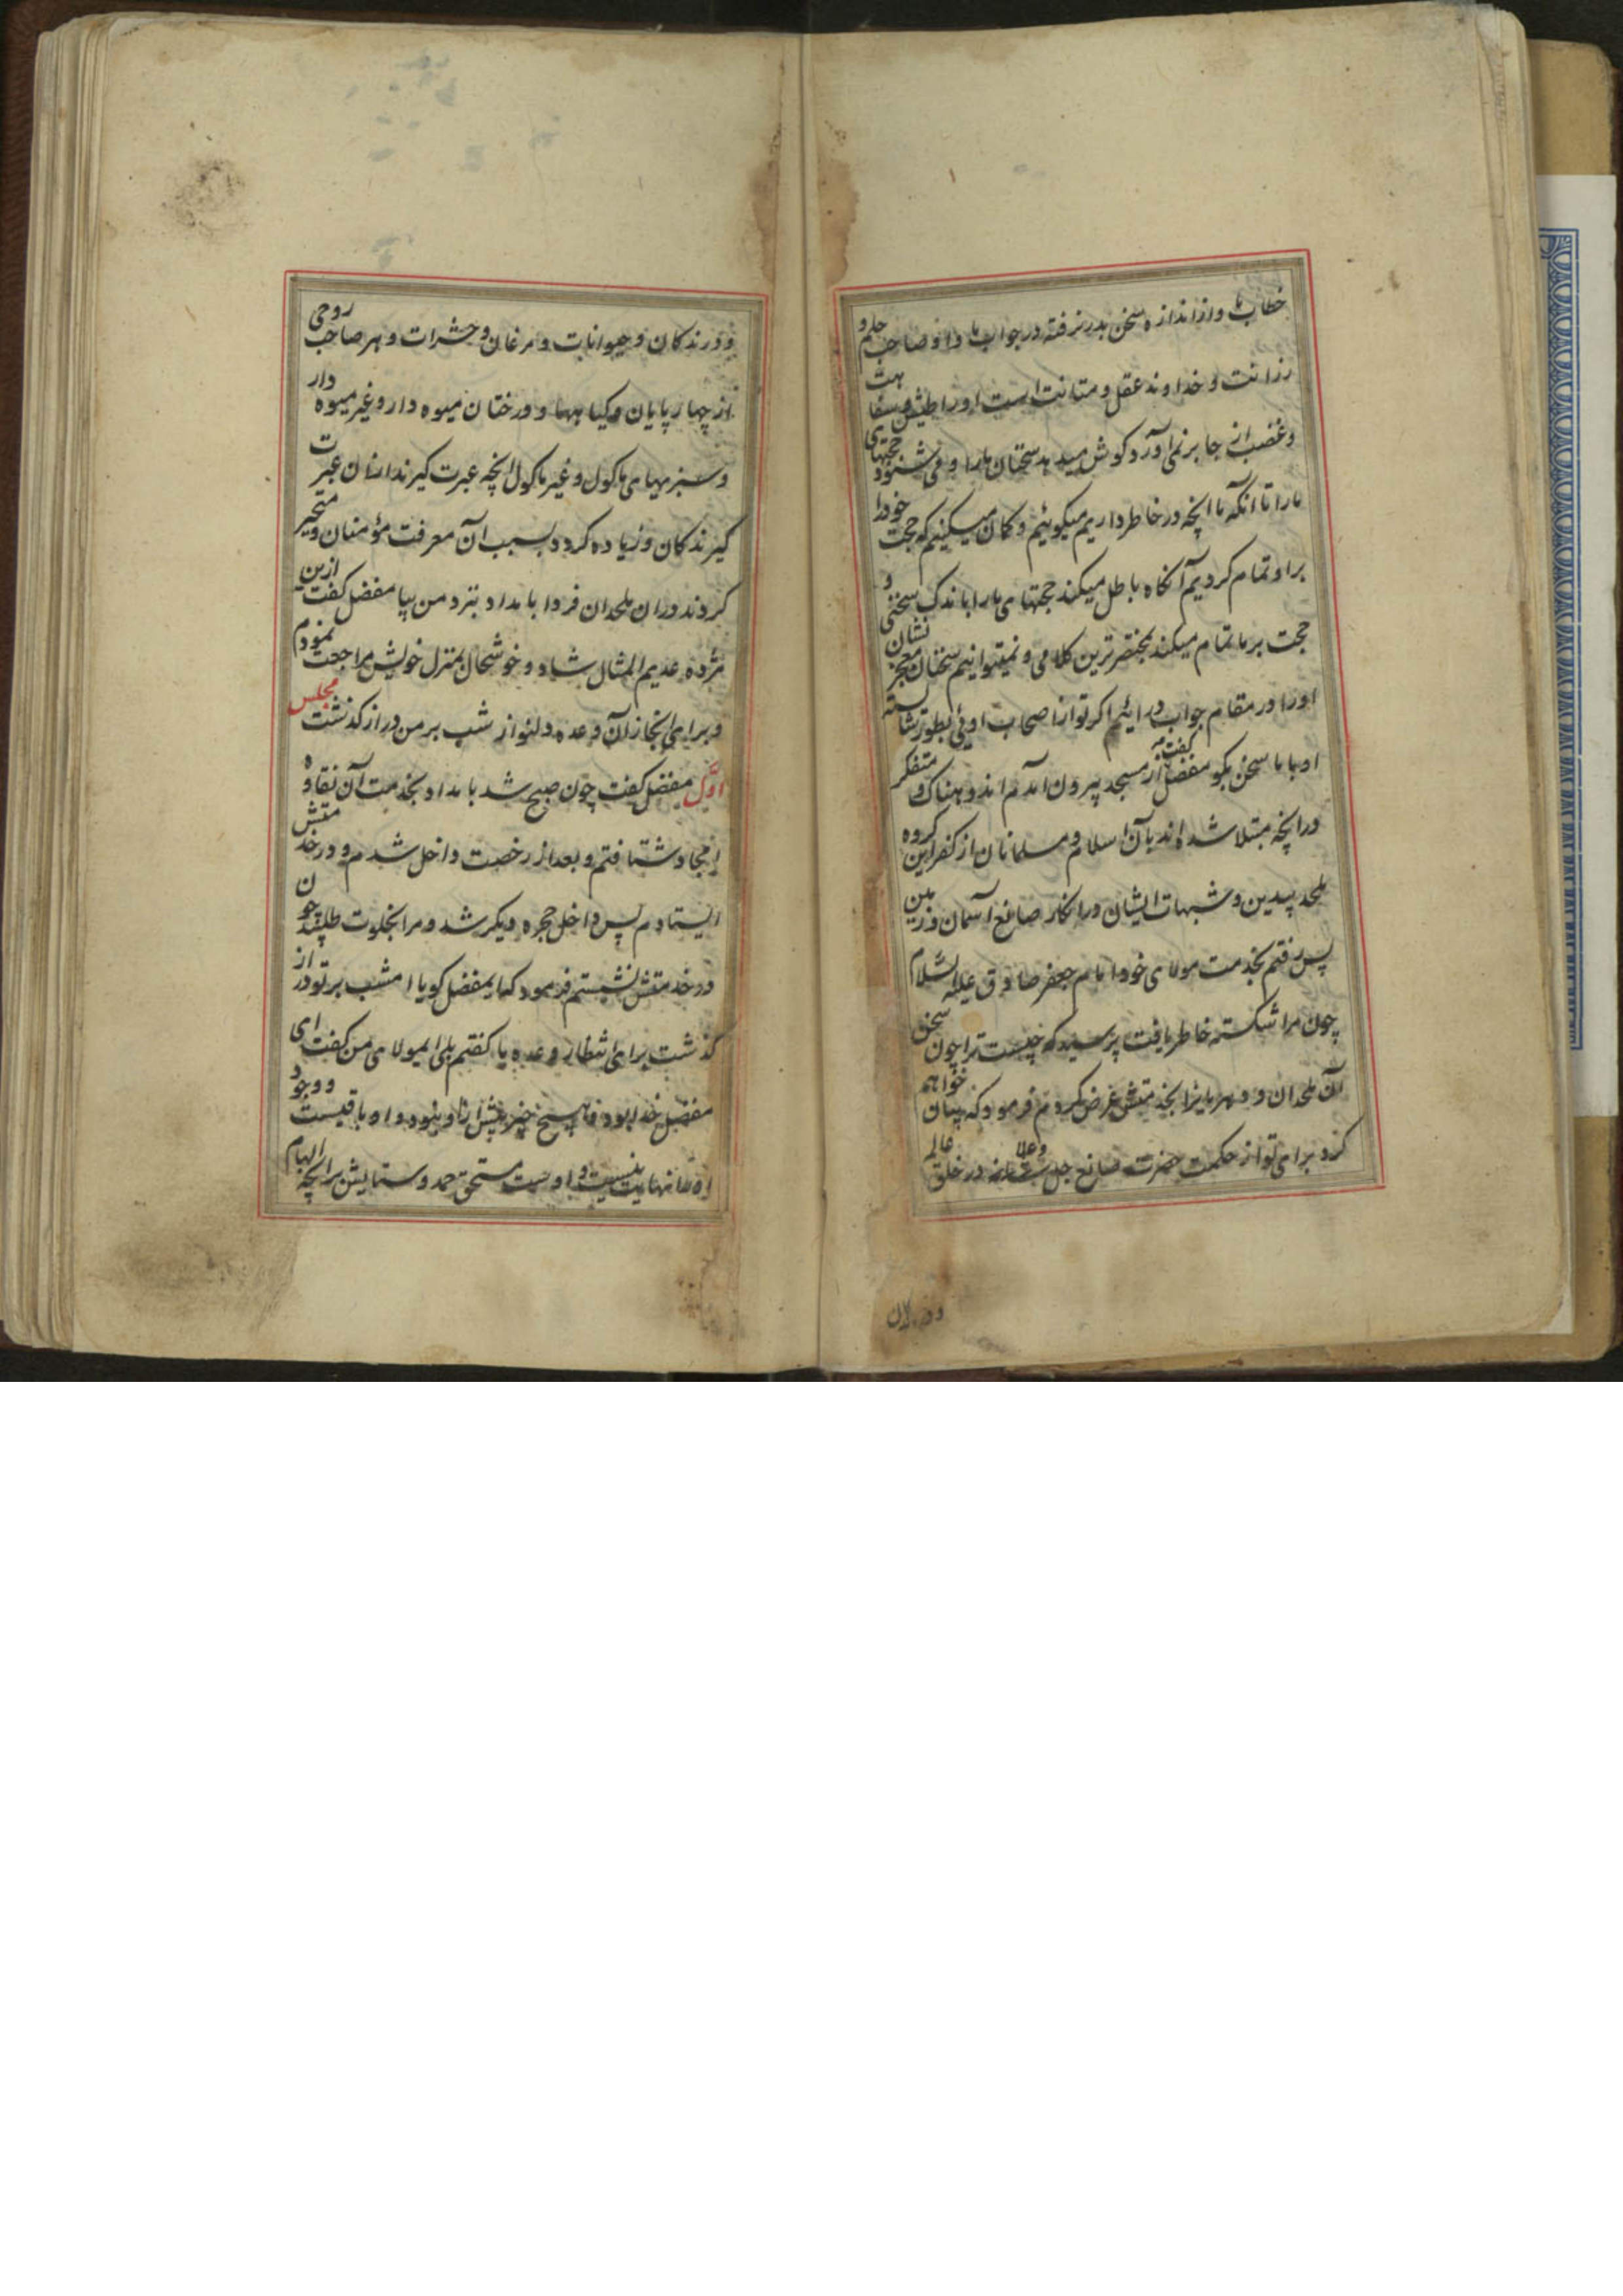 خطاب ما و از اندازه سخن بدر نرفته در جواب ما و او صاحب حلم و
رزانت و خداوند عقل و متانت است او را طیش و سفاهت
و غضب از جا بر نمی آورد کوش میدهد سخنان ما را و می شنود حجتهای
ما را تا آنکه ما آنچه در خاطر داریم میکوئیم و کمان میکنیم که حجت خود را
بر او تمام کردیم آنکاه باطل میکند حجتهای ما را باندک سخنی و
حجت بر ما تمام میکند بمختصر ترین کلامی و نمیتوانیم سخنان معجز نشان
او را در مقام جواب در ائیم اکر تو از اصحاب اوئی بطور شایسته
او با ما سخن بکو مفضل کفت که از مسجد بیرون آمدم اندوهناک و متفکر
در آنچه مبتلا شده اند بآن اسلام و مسلمانان از کفر این کروه
ملحد بیدین و شبهات ایشان در انکار صانع آسمان و زمین
پس رفتم بخدمت مولای خود امام جعفر صادق علیه السلام
چون مرا شکسته خاطر یافت پرسید که چیست ترا چون سخن
آن ملحدان و دهریانرا بخدمتش عرض کردم فرمود که بیان خواهم
کرد برای تو از حکمت حضرت صانع جل و علا شانه در خلق عالم
و درندکان
و درندکان و حیوانات و مرغان و حشرات و هر صاحب روحی
از چهار پایان و کیاهها و درختان میوه دار و غیر میوه دار
و سبزیهای ماکول و غیر ماکول آنچه عبرت کیرند از آن عبرت
کیرندکان و زیاده کردد بسبب آن معرفت مؤمنان و متحیر
کردند در آن ملحدان فردا بامداد بنزد من بیا مفضل کفت ازین
مژده عدیم المثال شاد و خوشحال بمنزل خویش مراجعت نمودم
و برای انجاز آن وعده دلنواز شب بر من دراز کذشت مجلس
اوّل مفضل کفت چون صبح شد بامداد بخدمت آن نقاوه
امجاد شتافتم و بعد از رخصت داخل شدم و در خدمتش
ایستادم پس داخل حجره دیکر شد و مرا بخلوت طلبید چون
در خدمتش نشستم فرمود که ایمفضل کویا امشب بر تو دراز
کذشت برای انتظار وعده ما کفتم بلی ایمولای من کفت ای
مفضل خدا بود و هیچ چیز پیش از او نبود و او باقیست و وجود
او را نهایت نیست و اوست مستحق حمد و ستایش بر آنچه الهام